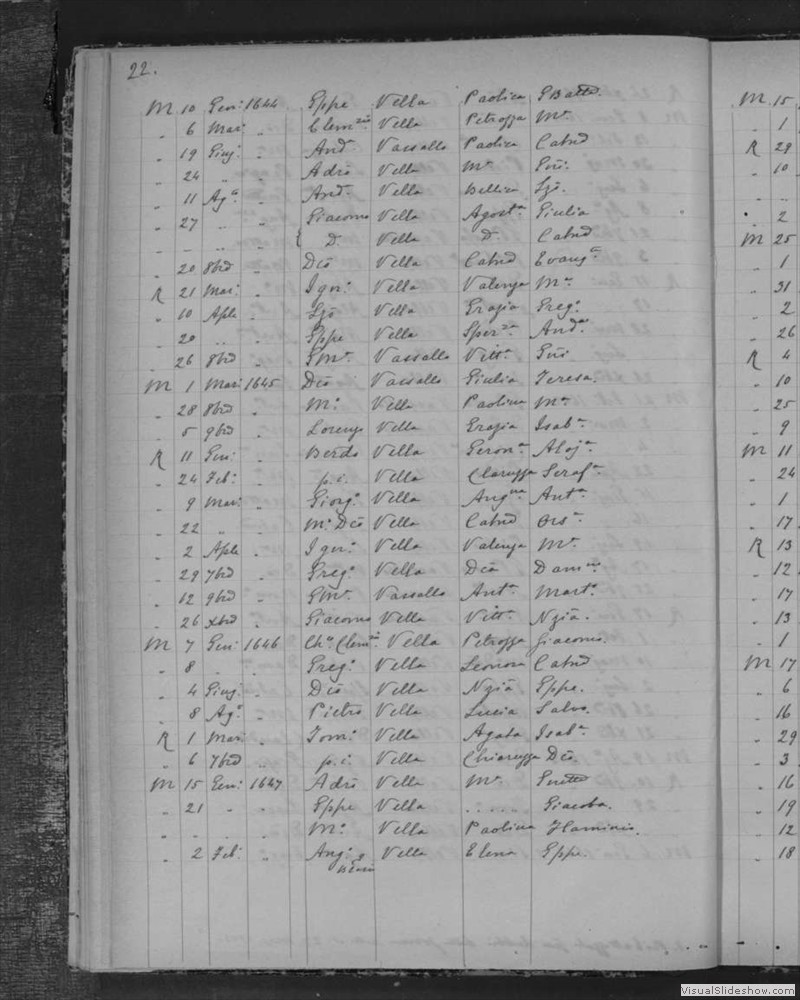 22.
M 10 Gen: 1644 Gppe Vella Paolica GBatta.
" 6 Mar: " Clem.zio Vella Petrozza Ma.
" 19 Giug: " And.a Vassallo Paolica Catnd
" 24 " " Adrio Vella Ma. Giu:
" 11 Ag.o " And.a Vella Bellica Lzo.
" 27 " " Giacomo Vella Agost.a Giulia
" " " D. Vella D. Catnd
" 20 8brd " Dco Vella Catnd Evang.a
R 21 Mar: " Ign: Vella Valenza Ma.
" 10 Aple " Lzo Vella Grazia Greg.o
" 20 " " Gppe Vella Sper.za And.a
" 26 8brd " GMa. Vassallo Vitt.a
M 1 Mar: 1645 Dco Vassallo Giulia Teresa.
" 28 8brd " M: Vella Paolica Ma.
" 5 9brd " Lorenzo Vella Grazia Isab.a
R 11 Gen: " Berdo Vella Geron.a Aloj.a
" 24 Feb: " p.i. Vella Claruzza Seraf.a
" 9 Mar: " Giorg.o Vella Ang.na Ant.a
" 22 " " M: Dco Vella Catnd Ors.a
" 2 Aple " Ign: Vella Valenza Ma.
" 29 7brd " Greg.o Vella Dca Dam.no
" 12 9brd " GMa. Vassallo Ant.a Mart.a
" 26 Xbrd " Giacomo Vella Vitt.a Nzia.
M 7 Gen: 1646 Ch.o Clem.zo Vella Petrozza Giacomo.
" 8 " " Greg.o Vella Leonora Catnd
" 4 Giug: " Dco Vella Nzia Gppe.
" 8 Ag.o " Pietro Vella Lucia Salvo.
R 1 Mar: " Tom: Vella Agata Isab.a
" 6 7brd " p.i. Vella Chiaruzza Dco.
M 15 Gen: 1647 Adrio Vella Ma.
" 21 " " Gppe Vella ...... Giacoba.
" " " " M: Vella Paolina Flaminio.
" 2 Feb: " Ang.o Vella Elena Gppe.
M 15
" 1
R 29
" 10
" 2
M 25
" 1
" 31
" 2
" 26
R 4
" 10
" 25
" 9
M 11
" 24
" 1
" 17
R 13
" 12
" 17
" 13
" 1
M 17
" 6
" 16
" 29
" 3
" 16
" 19
" 12
" 18
VisualSlideshow.com